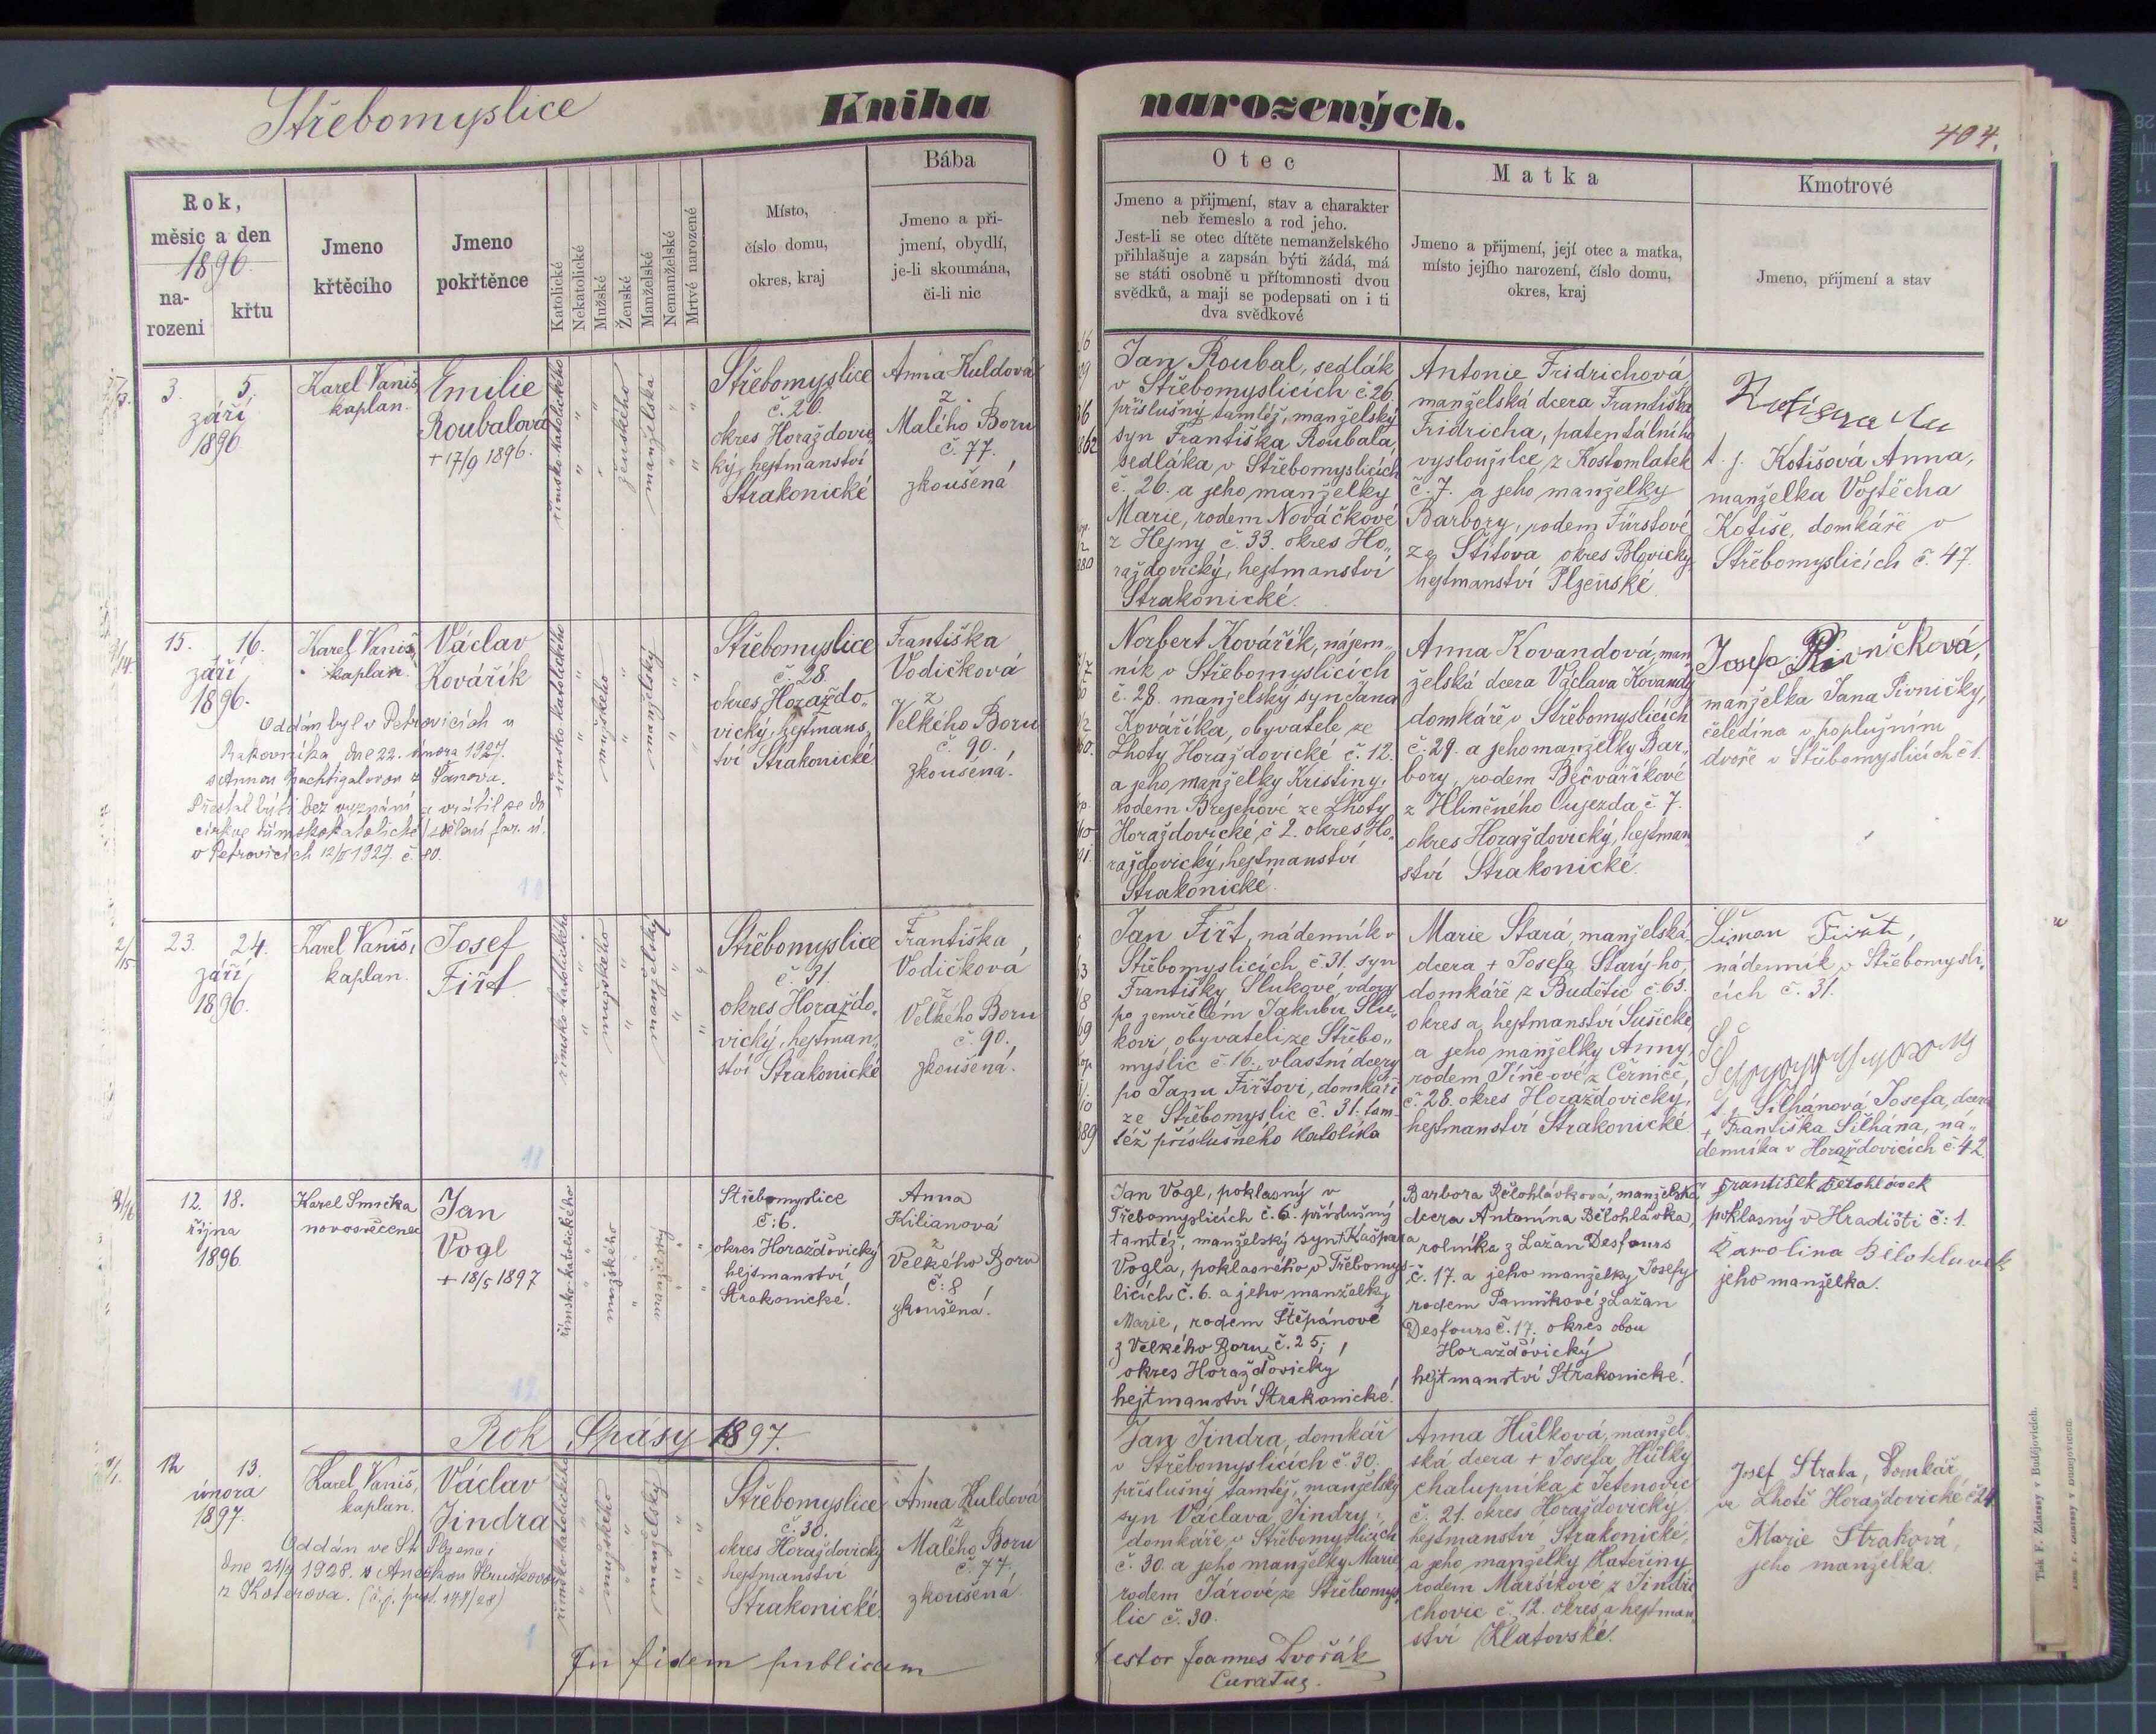 Střebomyslice
Kniha
narozených.
404.
Rok,
měsíc a den
1896.
na-
rození
křtu
Jmeno
křtěcího
Jmeno
pokřtěnce
Katolické
Nekatolické
Mužské
Ženské
Manželské
Nemanželské
Mrtvé narozené
Místo,
číslo domu,
okres, kraj
Bába
Jmeno a při-
jmení, obydlí,
je-li skoumána,
či-li nic
Otec
Jmeno a přijmení, stav a charakter
neb řemeslo a rod jeho.
Jest-li se otec dítěte nemanželského
přihlašuje a zapsán býti žádá, má
se státi osobně u přítomnosti dvou
svědků, a mají se podepsati on i ti
dva svědkové
Matka
Jmeno a přijmení, její otec a matka,
místo jejího narození, číslo domu,
okres, kraj
Kmotrové
Jmeno, přijmení a stav
3. 5.
září
1896.
Karel Vaniš,
kaplan.
Emilie
Roubalová
+ 17/9 1896.
římsko-katolického
ženského
manželská
Střebomyslice
č. 26.
okres Horažďovic
ký, hejtmanství
Strakonické
Anna Kuldová
z
Malého Boru
č. 77.
zkoušená
Jan Roubal, sedlák
v Střebomyslicích č. 26.
příslušný tamtéž, manželský
syn Františka Roubala,
sedláka v Střebomyslicích
č. 26. a jeho manželky
Marie, rodem Nováčkové
z Hejny č. 33. okres Ho„
raždovický, hejtmanství
Strakonické.
Antonie Fridrichová,
manželská dcera Františka
Fridricha, patentálního
vysloužilce, z Kostomlatek
č. 7. a jeho manželky
Barbory, rodem Fürstové
ze Štítova okres Blovický
hejtmanství Plzeňské.
t. j. Kotišová Anna,
manželka Vojtěcha
Kotiše, domkáře v
Střebomyslicích č. 47.
15. 16.
září
1896.
Karel Vaniš,
kaplan.
Václav
Kovářík
Oddán byl v Petrovicích u
Rakovníka, dne 22. února 1927.
s Annou Nachtigalovou z Panova.
Přestal býti bez vyznání a vrátil se do
církve římskokatolické / sdělení far. ú.
v Petrovicích 12/II 1927. č. 80.
římsko-katolického
mužského
manželský
Střebomyslice
č. 28.
okres Horaždo„
vický, hejtmans„
tví Strakonické
Františka
Vodičková
z
Velkého Boru
č. 90.
zkoušená.
Norbert Kovářík, nájem„
ník v Střebomyslicích
č. 28. manželský syn Jana
Kováříka, obyvatele ze
Lhoty Horaždovické č. 12.
a jeho manželky Kristiny,
rodem Brejchové ze Lhoty
Horaždovické, č 2. okres Ho„
raždovický, hejtmanství
Strakonické.
Anna Kovandová, man
želská dcera Václava Kovandy
domkáře v Střebomyslicích
č. 29. a jeho manželky Bar„
bory, rodem Bečvaříkové
z Hliněného Oujezda č 7.
okres Horaždovický, hejtman„
ství Strakonické.
Josefa Pivničková,
manželka Jana Pivničky,
čeledína v poplužním
dvoře v Střebomyslicích č 1.
23. 24.
září
1896.
Karel Vaniš,
kaplan.
Josef
Fiřt
římsko-katolického
mužského
manželský
Střebomyslice
č. 31.
okres Horaždo„
vický, hejtman„
ství Strakonické
Františka
Vodičková
z
Velkého Boru
č. 90.
zkoušená.
Jan Fiřt, nádenník v
Střebomyslicích č. 31. syn
Františky Slukové, vdovy
po zemřelém Jakubu Slu„
kovi, obyvateli ze Střebo„
myslic č. 16., vlastní dcery
po Janu Fiřtovi, domkáři
ze Střebomyslic č. 31. tam-
též příslušného katolíka
Marie Stará, manželská
dcera + Josefa Starý-ho,
domkáře z Budětic č. 63.
okres a hejtmanství Sušické,
a jeho manželky Anny,
č. 28. okres Horaždovický,
hejtmanství Strakonické
Šimon Fiřt,
nádenník v Střebomysli„
cích č. 31.
t. j. Silhánová Josefa, dcera
+ Františka Silhána, ná„
denníka v Horaždovicích č. 42.
12. 18.
října
1896.
Karel Smrčka
novosvěcenec
Jan
Vogl
+ 18/5 1897
římsko-katolického
mužského
manželský
Střebomyslice
č: 6.
okres Horažďovický
hejtmanství
Strakonické.
Anna
Kilianová
z
Velkého Boru
č: 8
zkoušená.
Jan Vogl, poklasný v
Třebomyslicích č. 6. příslušný
tamtéž, manželský syn + Kašpara
Vogla, poklasného v Třebomys-
licích č. 6. a jeho manželky
Marie, rodem Štěpánové
z Velkého Boru č. 25;
okres Horažďovický
hejtmanství Strakonické.
Barbora Bělohlávková, manželská
dcera Antonína Bělohlávka,
rolníka z Lažan Desfours
č. 17. a jeho manželky Josefy
rodem Panuškové z Lažan
Desfours č. 17. okres obou
Horažďovický
hejtmanství Strakonické.
František Bělohlávek
poklasný v Hradišti č: 1.
Karolina Bělohlávek
jeho manželka.
Rok Spásy 1897.
12 13.
února
1897.
Karel Vaniš,
kaplan.
Václav
Jindra
Oddán ve St. Plzenci
dne 21/4 1928. s Anežkou Hruškovou
z Kosterova. (č. j. prot. 144/28)
římsko-katolického
mužského
manželský
Střebomyslice
č. 30.
okres Horaždovický
hejtmanství
Strakonické.
Anna Kuldová
z
Malého Boru
č. 77.
zkoušená.
Jan Jindra, domkář
v Střebomyslicích č. 30.
příslušný tamtéž, manželský
syn Václava Jindry,
domkáře v Střebomyslicích
č. 30. a jeho manželky Marie
rodem Járové ze Střebomys„
lic č. 30.
Anna Hůlková, manžel„
ská dcera + Josefa Hůlky
chalupníka z Tetenovic
č. 21. okres Horaždovický,
hejtmanství Strakonické,
a jeho manželky Kateřiny
rodem Maršíkové z Jindři
chovic č. 12. okres a hejtman„
ství Klatovské.
Josef Straka, Domkář
ve Lhotě Horažďovické č 24
Marie Straková,
jeho manželka.
In fidem publicam
testor Joannes Dvořák
Curatus.
Tisk F. Zdarssy v Budějovicích.